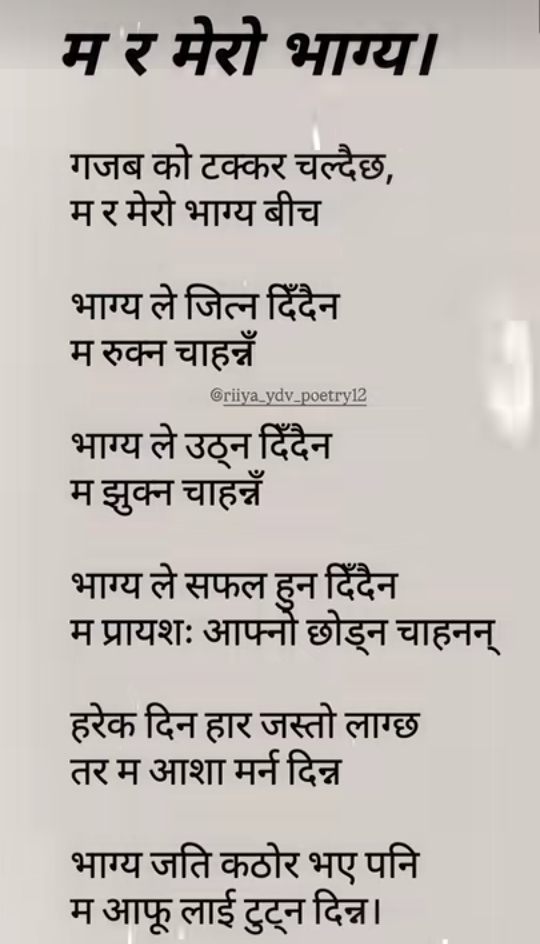 म र मेरो भाग्य।
गजब को टक्कर चल्दैछ,
म र मेरो भाग्य बीच
भाग्य ले जित्न दिँदैन
म रुक्न चाहन्नँ
@riiya_ydv_poetry12
भाग्य ले उठ्न दिँदैन
म झुक्न चाहन्नँ
भाग्य ले सफल हुन दिँदैन
म प्रायशः आफ्नो छोड्न चाहनन्
हरेक दिन हार जस्तो लाग्छ
तर म आशा मर्न दिन्न
भाग्य जति कठोर भए पनि
म आफू लाई टुट्न दिन्न।